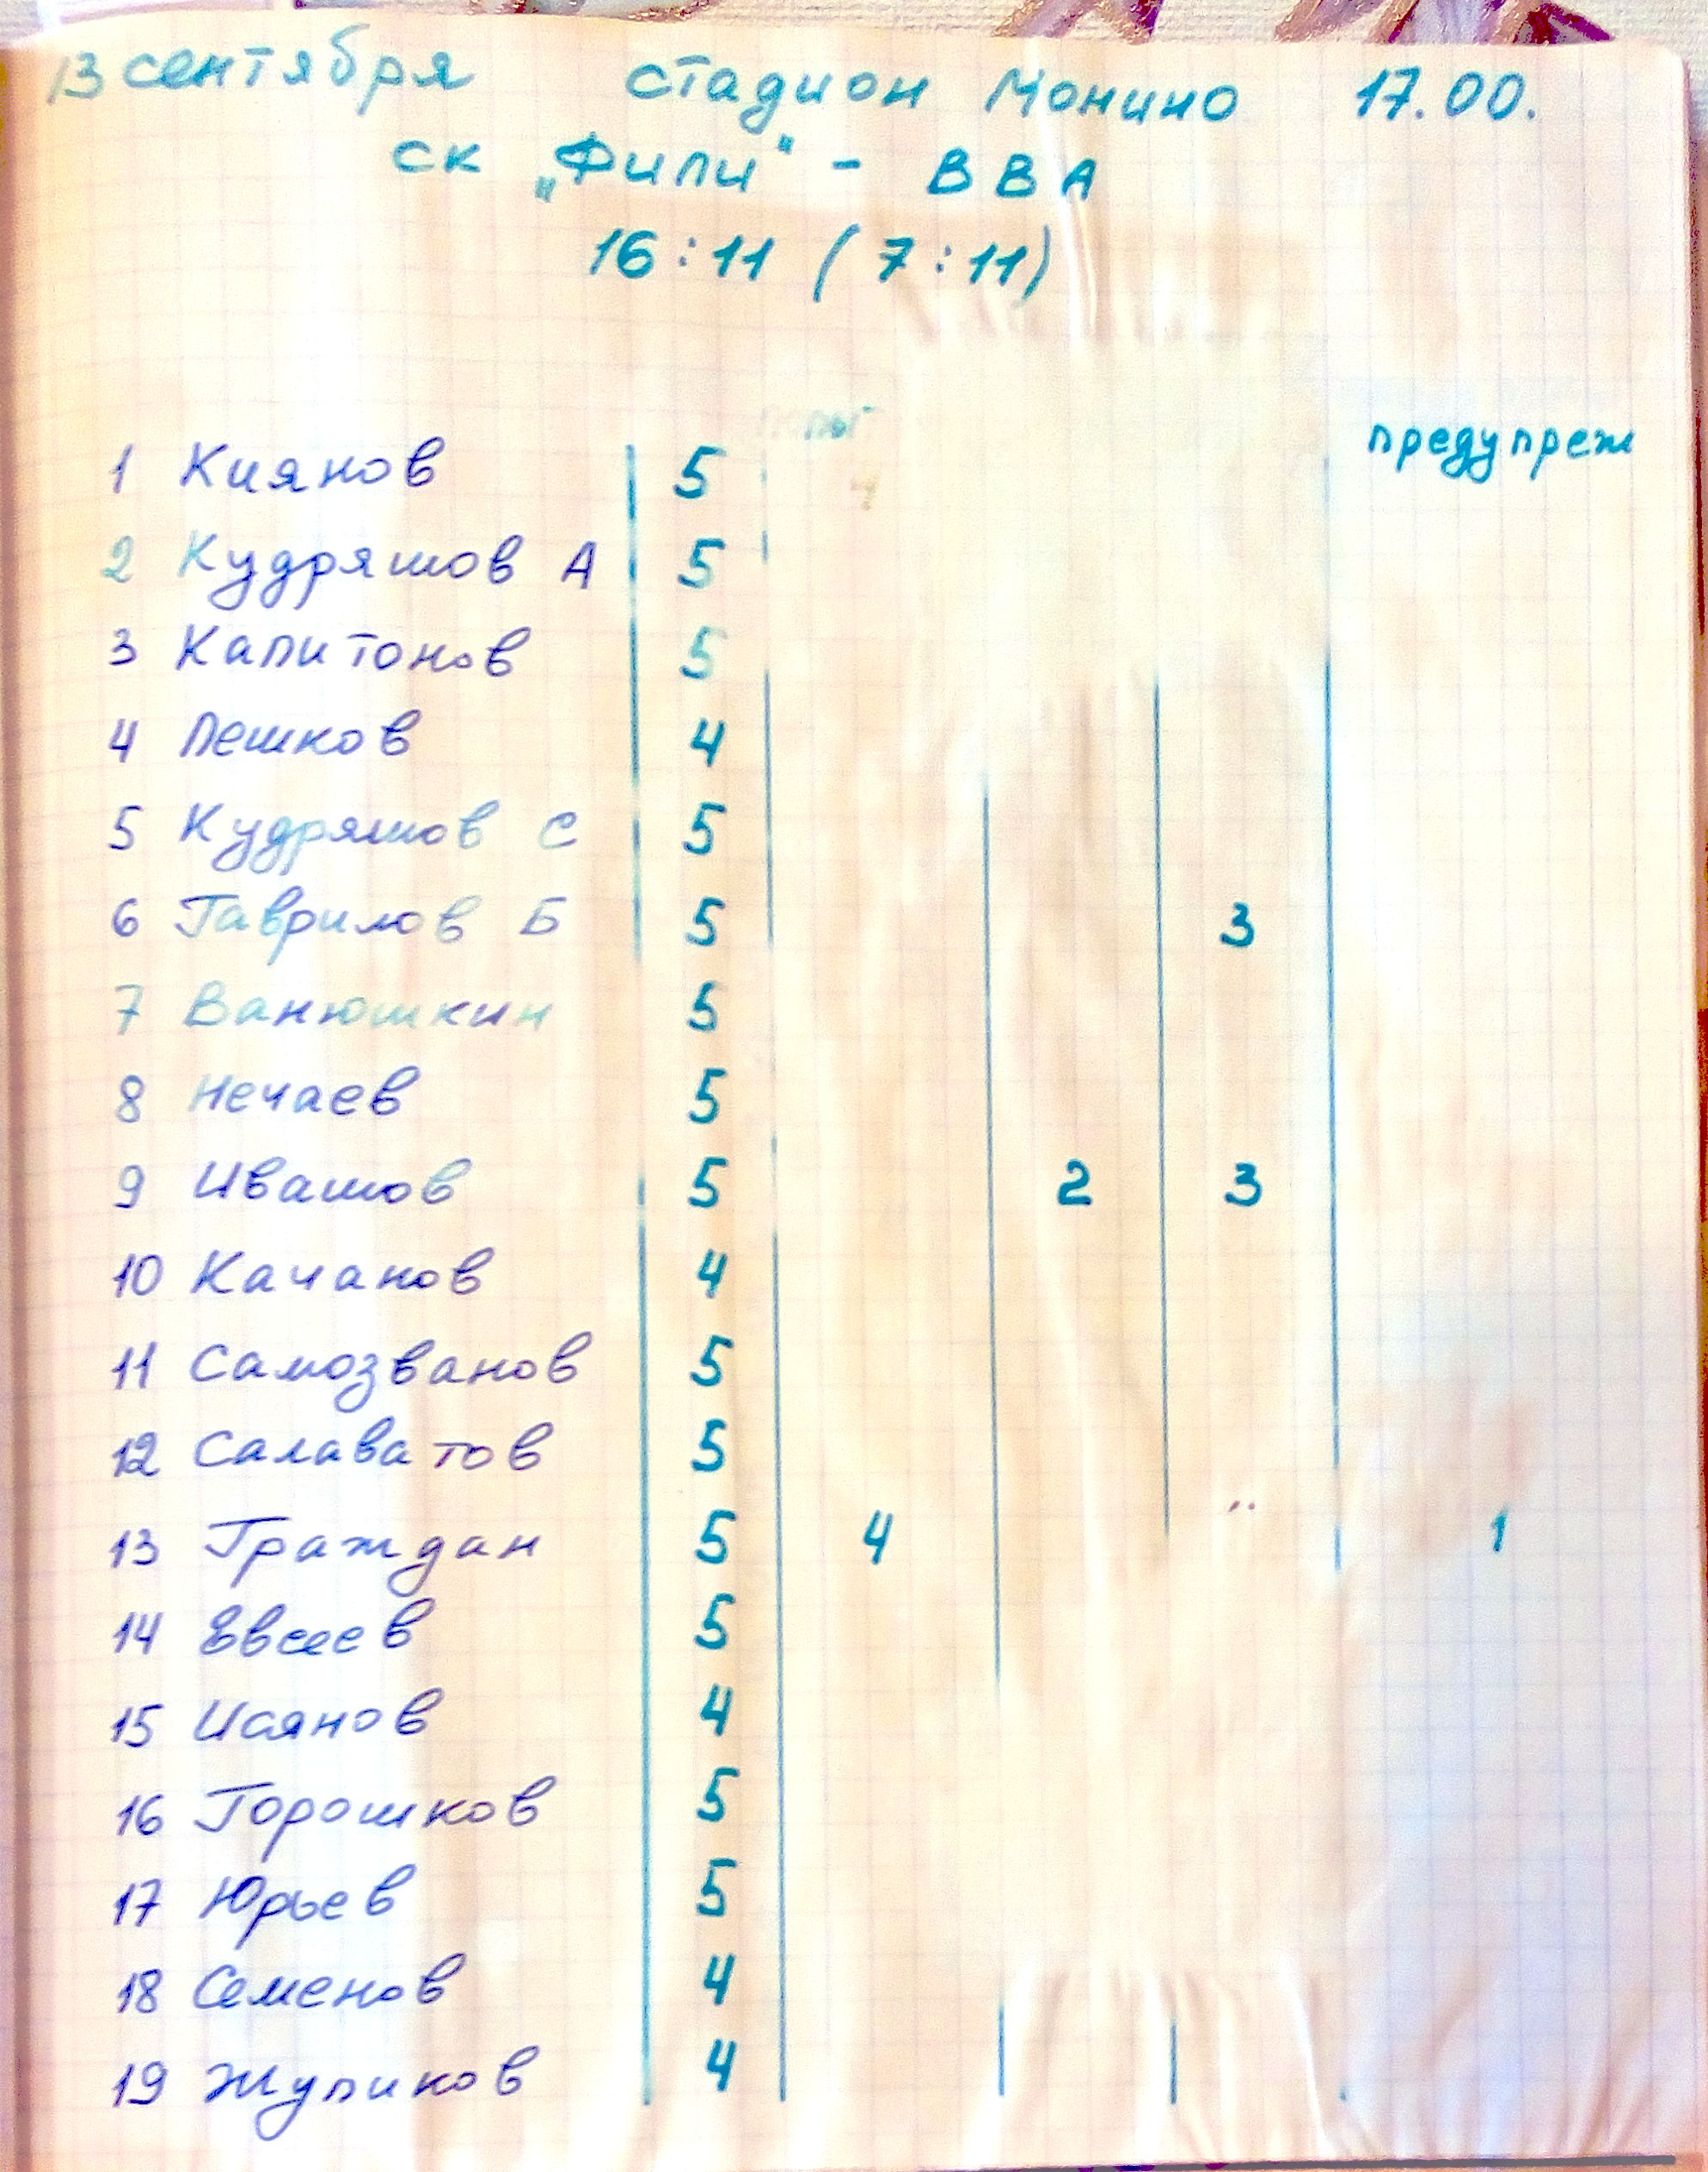 13 сентября стадион Монино 17.00.
ск „Фили" - ВВА
16:11 (7:11)
предупреж
1 Киянов 5
2 Кудряшов А 5
3 Капитонов 5
4 Пешков 4
5 Кудряшов С 5
6 Гаврилов Б 5 3
7 Ванюшкин 5
8 Нечаев 5
9 Ивашов 5 2 3
10 Качанов 4
11 Самозванов 5
12 Салаватов 5
13 Граждан 5 4 1
14 Евсеев 5
15 Исянов 4
16 Горошков 5
17 Юрьев 5
18 Семенов 4
19 Жупиков 4